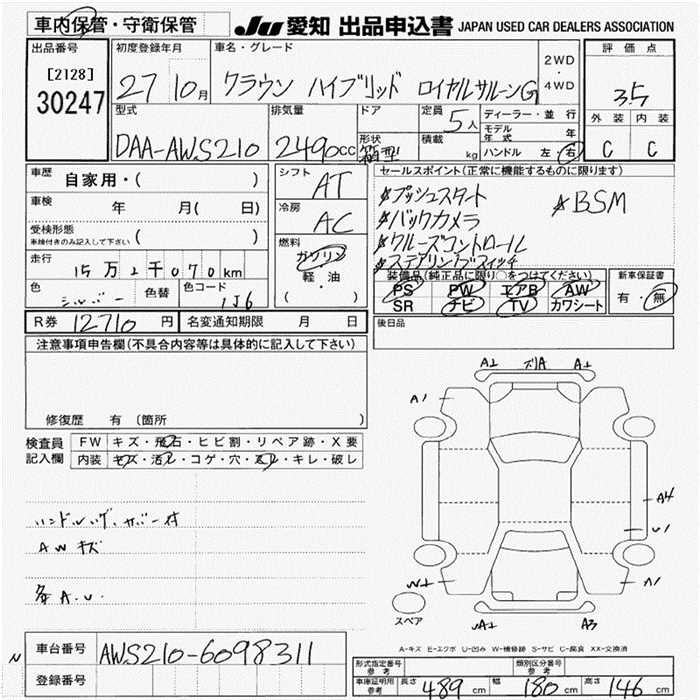 車内保管・守衛保管
JU 愛知 出品申込書 JAPAN USED CAR DEALERS ASSOCIATION
出品番号 初度登録年月 車名・グレード 2WD・4WD 評価点
[2128]
30247
27 10月 クラウン ハイブリッド ロイヤルサルーンG
3.5
型式 排気量 ドア 定員 5人 ディーラー・並行 外装 内装
形状 積載 kg モデル年式 年
DAA-AWS210 2490cc 箱型 ハンドル 左・右 C C
車歴 自家用・( )
シフト AT
セールスポイント(正常に機能するものに限ります)
車検 年 月( 日)
冷房 AC
*プッシュスタート *BSM
*バックカメラ
*クルーズコントロール
*ステアリングスイッチ
受検形態 車検付きのみ記入して下さい ( )
燃料 ガソリン 軽・油 ( ・ )
走行 15万2千070km
装備品(純正品に限り○をつけてください) 新車保証書
PS PW エアB AW
SR ナビ TV カワシート
有・無
色 シルバー 色替 色コード 1J6
R券 12710円 名変通知期限 月 日
後日品
注意事項申告欄(不具合内容等は具体的に記入して下さい)
修復歴 有 (箇所 )
検査員記入欄 FW キズ・飛石・ヒビ割・リペア跡・X要
内装 キズ・汚レ・コゲ・穴・スレ・キレ・破レ
AWキズ
各A.U.
A1 ズリA A1
A1
A4
U1
W1 A1
A1 A3
スペア
A-キズ E-エクボ U-凹み W-補修跡 S-サビ C-腐食 XX-交換済
車台番号 AWS210-6098311
N
登録番号
形式指定番号 参考 類別区分番号 参考
車庫証明用 参考 長さ 489cm 幅 180cm 高さ 146cm